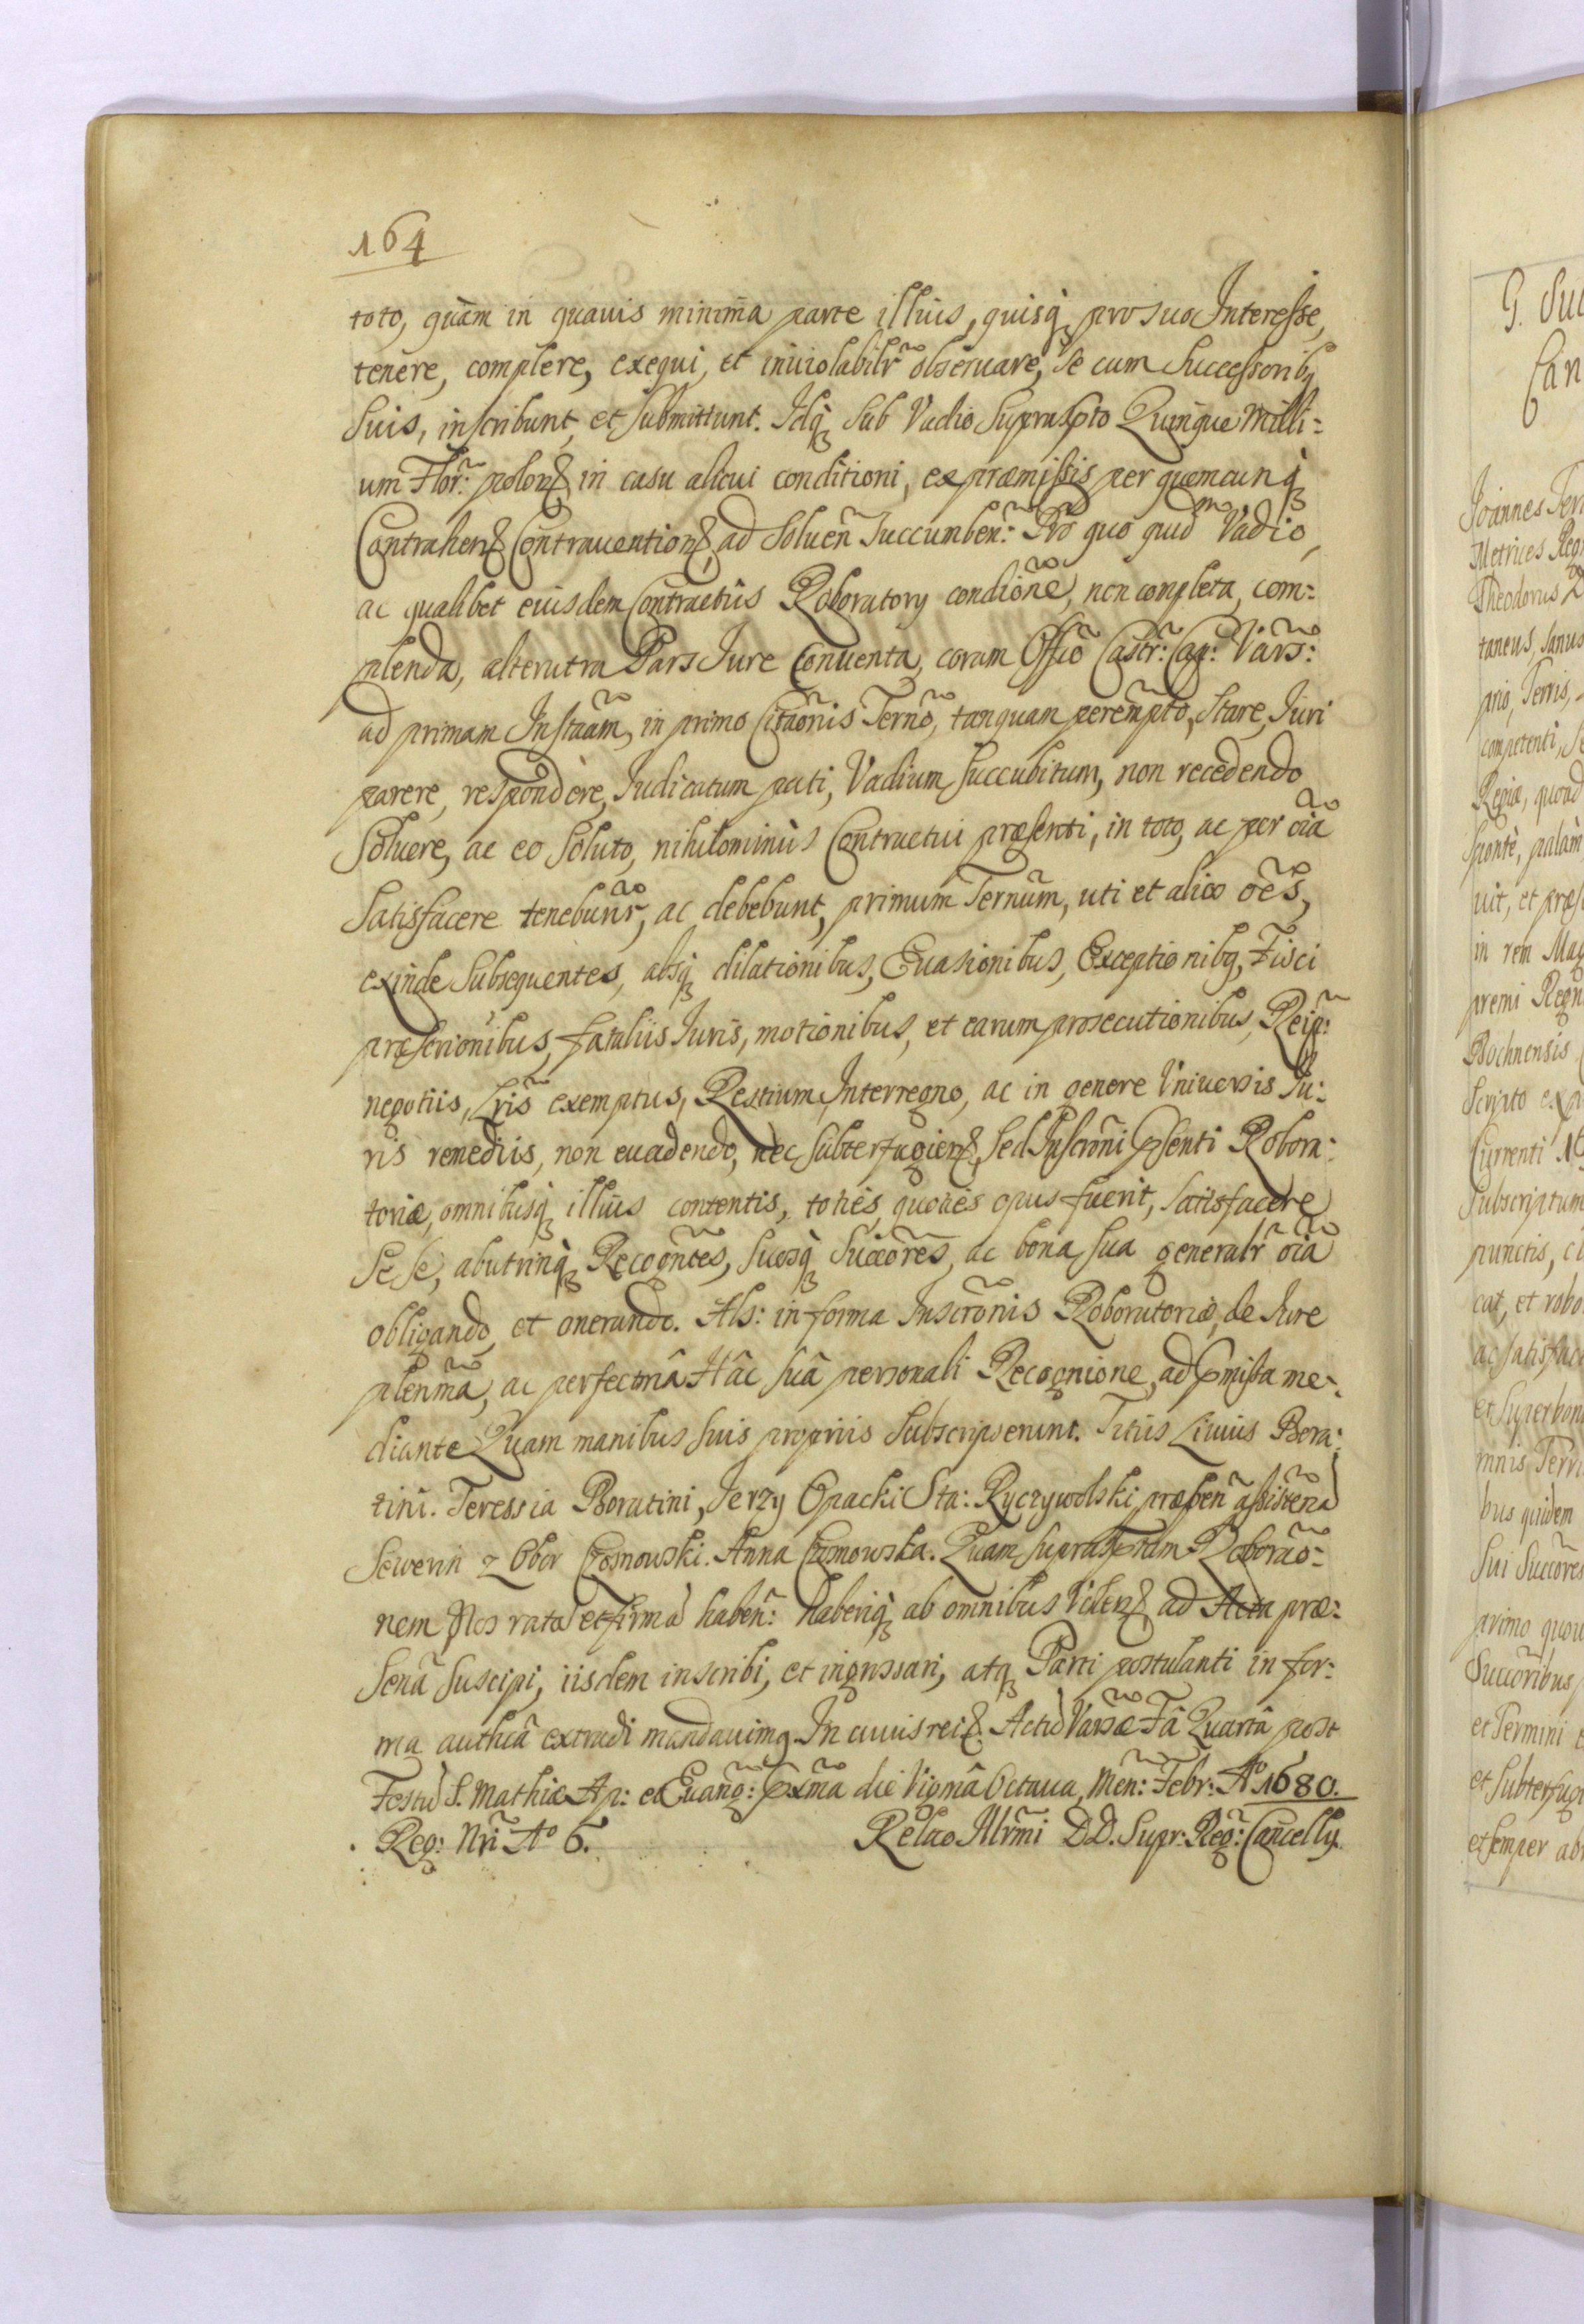 164
toto, quàm in quavis minima parte illius, quisq pro suo Interesse,
tenere, complere, exequi, et inviolabilr observare, se cum Successorib
Suis, inscribunt, et submittunt. Idq Sub Vadio Suprascpto Quinque Milli:
um Flor: polon in casu alicui conditioni, ex præmissis per quemcunq
Contrahen Contravention, ad Soluen Succumben: Pro quo quid Vadio,
ac qualibet eiusdem Contractûs Roboratory condione, non completa, com:
plenda, alterutra Pars Jure Conventa, coram Offcio Castr: Cap: Vars:
ad primam Instaām, in primo Citaōnis Terno, tanquam perempto, Stare, Juri
parere, respondere, Judicatum pati, Vadium succubitum, non recedendo
Soluere, ac eo Soluto, nihilominùs Contractui præsenti, in toto, ac per oīa
Satisfacere tenebunr, ac debebunt, primum Ternum, uti et alios oēs,
exinde Subsequentes, absq dilationibus, Evasionibus, Exceptionibq, Fisci
præscrionibus, fataliis Juris, motionibus, et earum prosecutionibus, Reip:
negotiis, Lris exemptus, Pestium, Interregno, ac in genere Universis Ju:
ris remediis, non evadendo, nec Subterfugien, Sed Inscrōni psenti Robora:
toriæ, omnibusq illius contentis, toties, quoties opus fuerit, satisfacere
Se se, abutrinq Recognites, Suosq Succōres, ac bona sua generalr oīa
obligando, et onerando. Als: in forma Inscrōnis Roboratoriæ, de Jure
plenmā, ac perfectmâ Hâc suâ personali Recognione, ad pmissa me-
diante Quam manibus suis propriis Subscripserunt. Titus Livius Bora:
tini. Teressia Boratini, Jerzy Opacki Sta: Ryczywolski, præsen assistena
Sewerin z Obor Czosnowski. Anna Czosnowska. Quam suprascptam Roborāo:
nem Nos rata et firma haben: haberiq ab omnibus Volen ad Acta præ:
sena suscipi, iisdem inscribi, et ingrossari, atq Parti postulanti in for:
ma authcâ extradi mandavimq. In cuius rei Actu Varsæ Fâ Quartâ post
Festu S. Mathiæ Ap: et Evang: pxma die Vigmâ Octava, Men: Febr: Aº 1680.
Reg: Nri Aº 6. Relao Illrmi DD. Supr: Reg: Cancelly